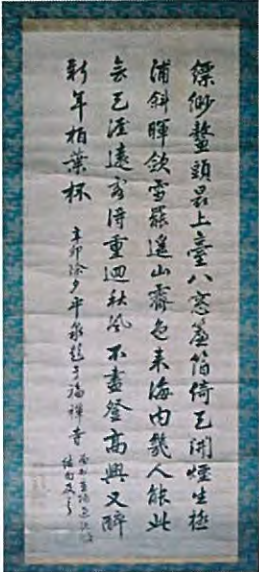 縹緲鼇頭最上臺八窓簾箔倚天開煙生極
浦斜暉斂雪罷遙山霽色来海内幾人能此
會天涯遠客得重迴秋風不盡登高興又醉
新年柏葉杯 辛卯除夕平泉題于福禪寺